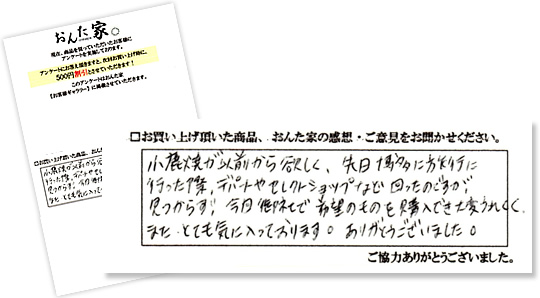 おんた家。
現在、商品を買っていただいたお客様に
アンケートを実施しております。
アンケートにお答え頂きますと、次回お買い上げ時に、
500円割引とさせていただきます!
このアンケートはおんた家
【お客様ギャラリー】に掲載させていただきます。
□お買い上げ頂いた商品、おん
小鹿焼が以前から
行った際、デパートや
見つからず、今回
また とても気に入って
□お買い上げ頂いた商品、おんた家の感想・ご意見をお聞かせください。
小鹿焼が以前から欲しく、先日博多に旅行に
行った際、デパートやセレクトショップなど回ったのですが
見つからず、今回御社で希望のものを購入でき大変うれしく、
また とても気に入っております。ありがとうございました。
ご協力ありがとうございました。